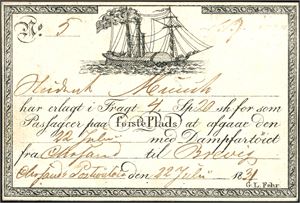 No 5
Student Munch
har erlagt i Fragt 4 Sp 20 sk for som
Passageer paa Første Plads at afgaae den
22 Julii med Dampfartöiet
fra Chrsand til
den 22 Julii 183
G. L. Fehr